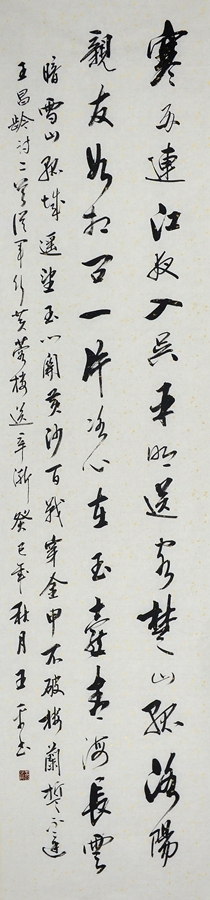 寒雨連江夜入吳平明送客楚山孤洛陽
親友如相問一片冰心在玉壺青海長雲
暗雪山孤城遥望玉门關黄沙百戰穿金甲不破樓蘭誓不還
王昌齡诗二首從軍行芙蓉樓送辛漸癸巳年秋月王